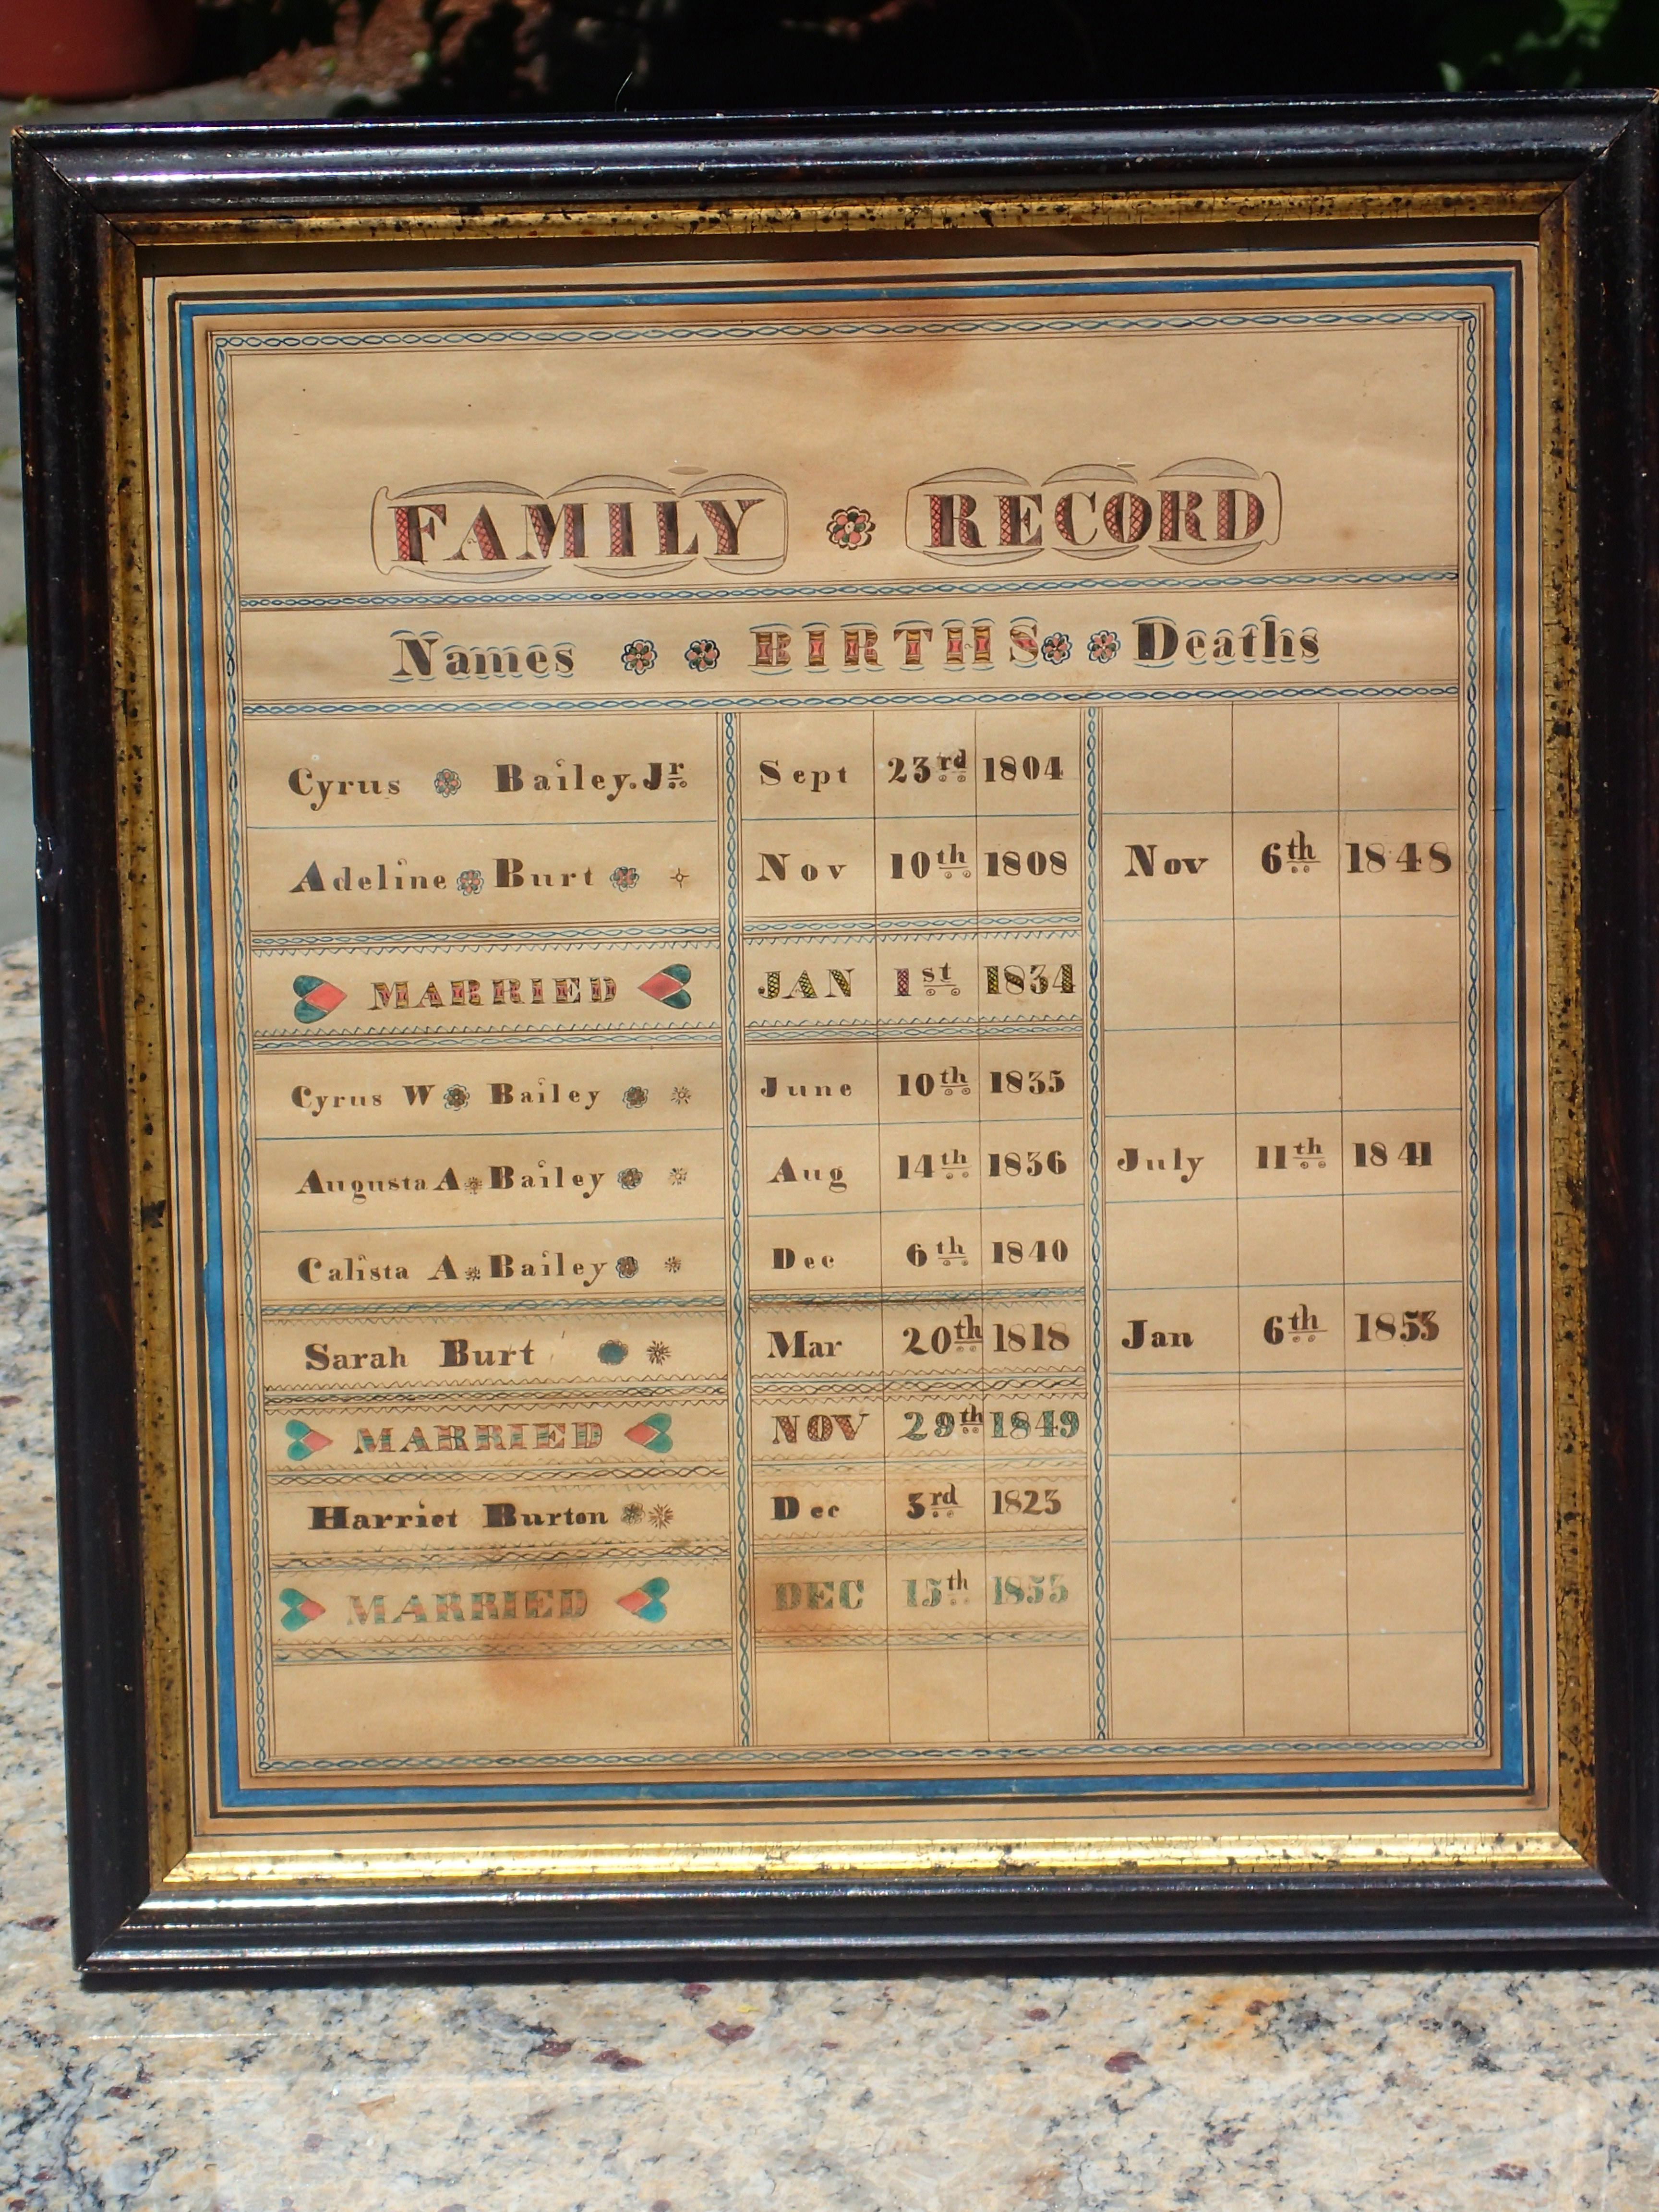 FAMILY RECORD
Names BIRTHS Deaths
Cyrus Bailey. Jr. Sept 23rd 1804
Adeline Burt Nov 10th 1808 Nov 6th 1848
MARRIED JAN 1st 1834
Cyrus W Bailey June 10th 1835
Augusta A Bailey Aug 14th 1836 July 11th 1841
Calista A Bailey Dec 6th 1840
Sarah Burt Mar 20th 1818 Jan 6th 1853
MARRIED NOV 29th 1849
Harriet Burton Dec 3rd 1823
MARRIED DEC 15th 1853